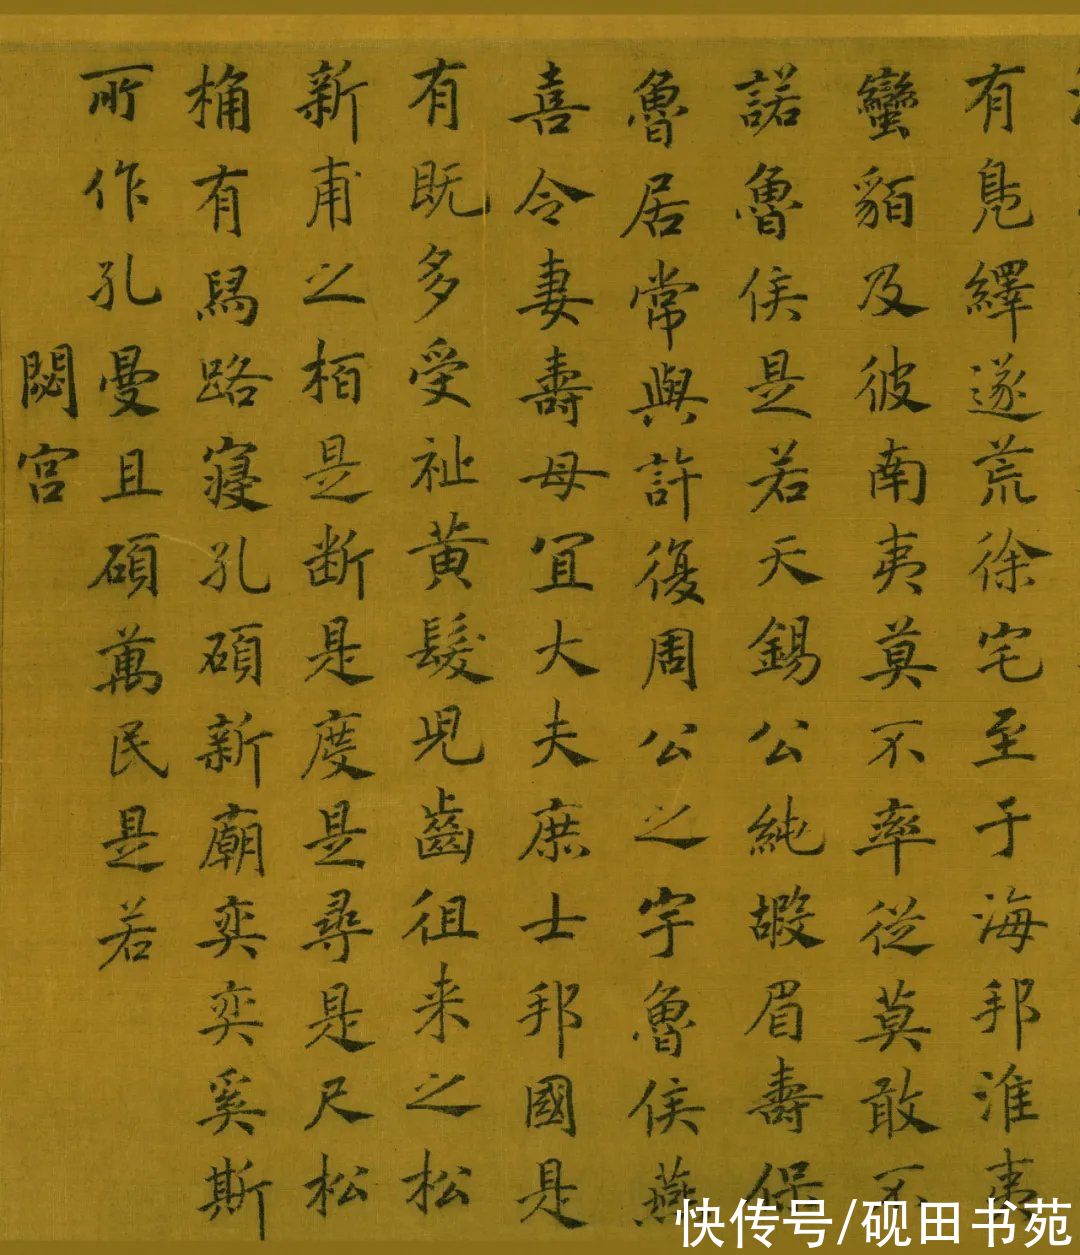 有鳧繹遂荒徐宅至于海邦淮夷
蠻貊及彼南夷莫不率從莫敢不
諾魯侯是若天錫公純嘏眉壽保
魯居常與許復周公之宇魯侯燕
喜令妻壽母宜大夫庶士邦國是
有既多受祉黃髮兒齒徂来之松
新甫之栢是断是度是尋是尺松
桷有舄路寢孔碩新廟奕奕奚斯
所作孔曼且碩萬民是若
閟宮
快传号/砚田书苑